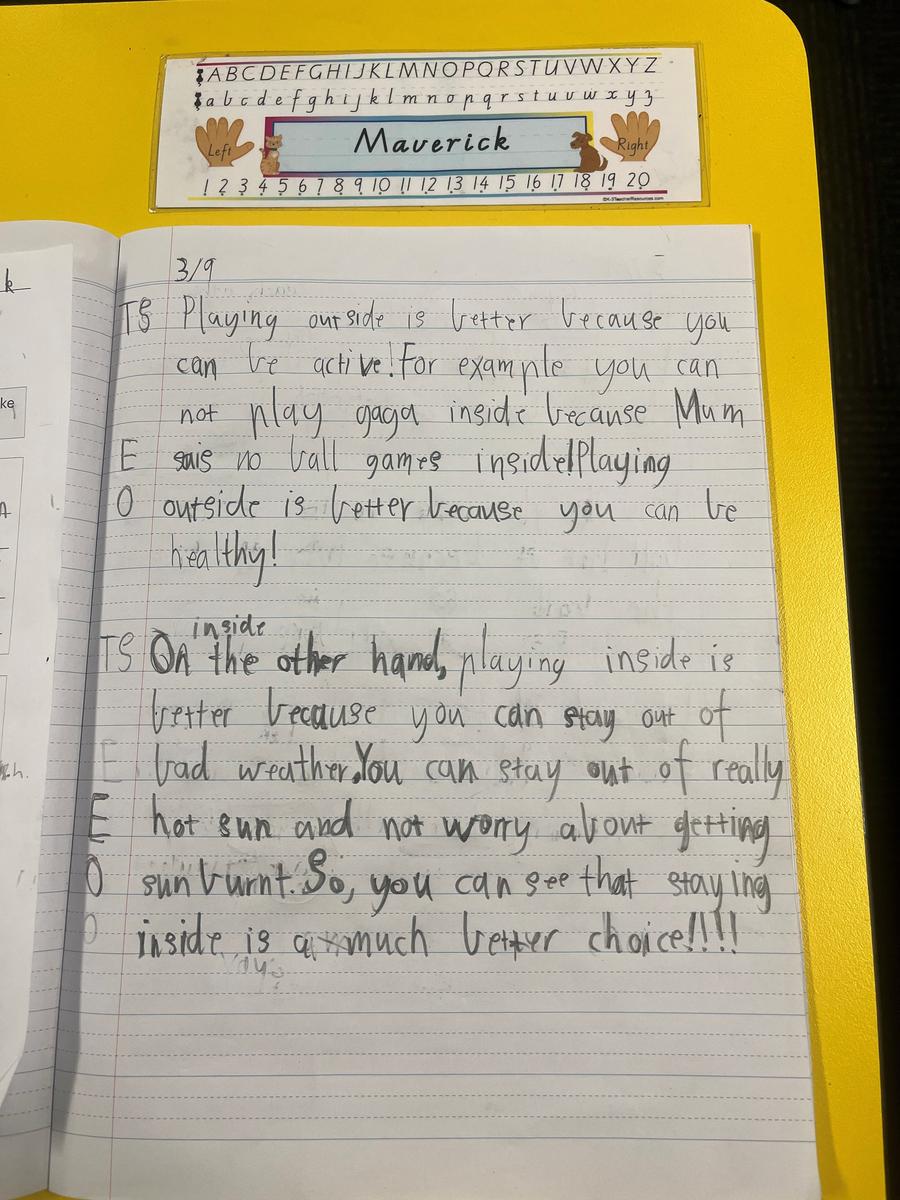 ABCDEFGHIJKLMNOPQRSTUVWXYZ
abcdefghijklmnopqrstuvwxyz
Left
Maverick
Right
1 2 3 4 5 6 7 8 9 10 11 12 13 14 15 16 17 18 19 20
©K-3TeacherResources.com
k
ke
3/9
TS Playing outside is better because you
can be active! For example you can
not play gaga inside because Mum
E sais no ball games inside! Playing
O outside is better because you can be
healthy!
inside
TS On the other hand, playing inside is
better because you can stay out of
E bad weather. You can stay out of really
E hot sun and not worry about getting
O sunburnt. So, you can see that staying
O inside is a much better choice!!!!